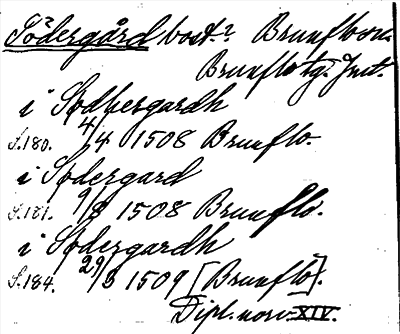 Södergård bost.? Brunflo sn.
Brunflo tg. Jmt.
i Sodhergardh
S. 180. 4/4 1508 Brunflo.
i Sodergard
S. 181. 9/8 1508 Brunflo.
i Sodergardh
S. 184. 29/3 1509 [Brunflo].
Dipl. norv. XIV.